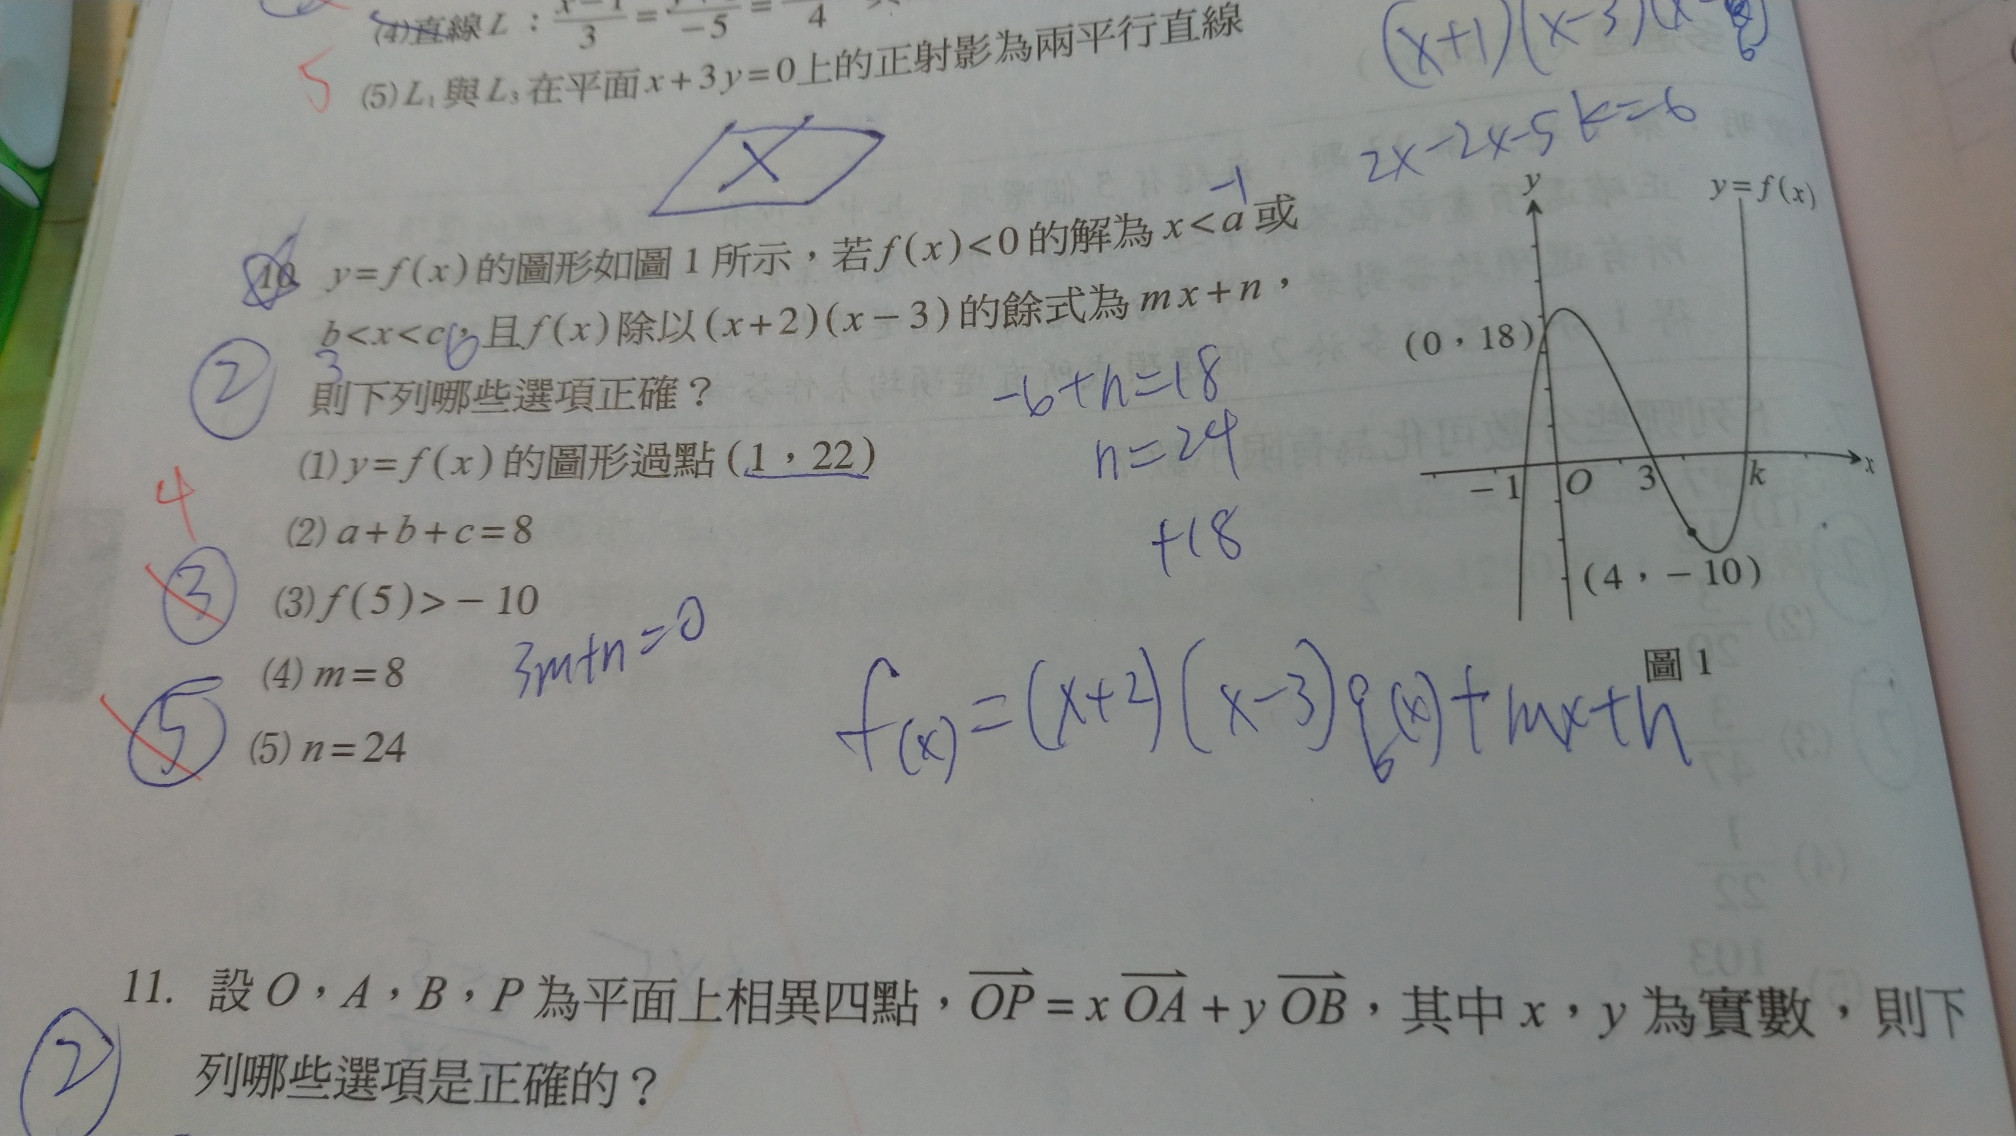 (4)直線 L：
3 = -5 = 4
(5) L₁與L₃在平面 x+3y=0上的正射影為兩平行直線
5
(x+1)(x-3)(x-
6
2x-2x-5k=6
X
-1
10. y=f(x)的圖形如圖1所示，若f(x)<0的解為x<a或
b<x<c，且f(x)除以(x+2)(x-3)的餘式為mx+n，
3
6
2
則下列哪些選項正確？
(1) y=f(x)的圖形過點(1，22)
4
(2) a+b+c=8
3
(3) f(5)>-10
(4) m=8
5
(5) n=24
-6+n=18
n=24
+18
3m+n=0
f(x)=(x+2)(x-3)q(x)+mx+n
y
y=f(x)
(0，18)
-1
O
3
k
x
(4，-10)
圖1
11. 設O，A，B，P為平面上相異四點，OP=xOA+yOB，其中x，y為實數，則下
2
列哪些選項是正確的？